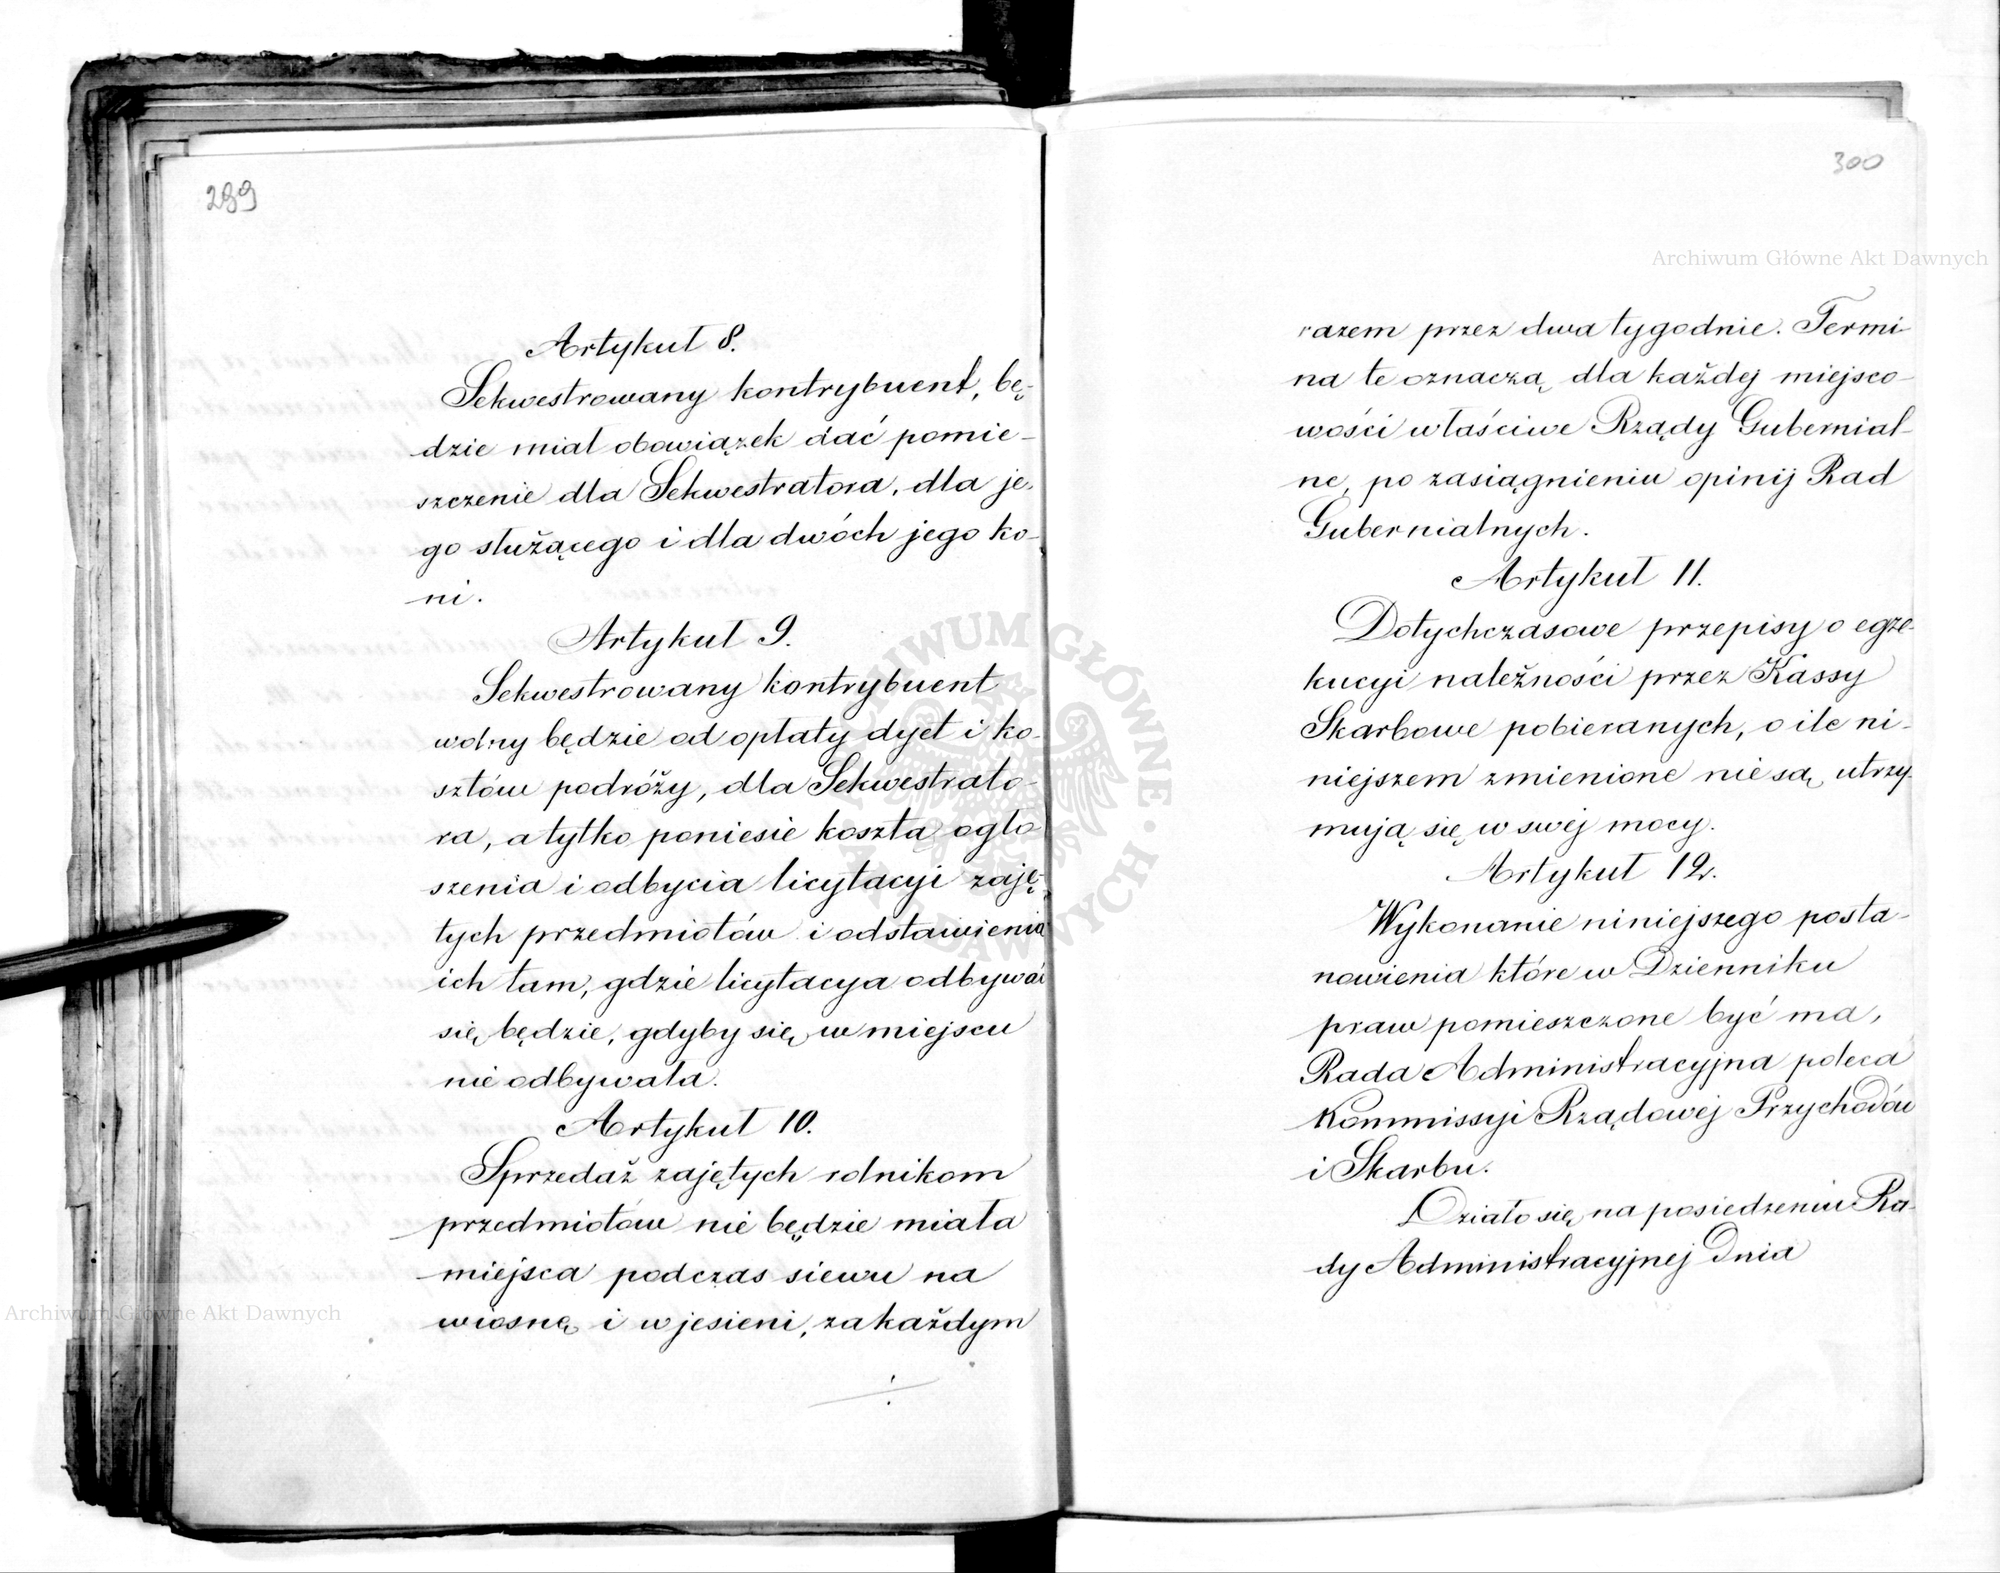 289
Artykuł 8.
Sekwestrowany kontrybuent, bę-
dzie miał obowiązek dać pomie-
szczenie dla Sekwestratora, dla je-
go służącego i dla dwóch jego ko-
ni.
Artykuł 9.
Sekwestrowany kontrybuent
wolny będzie od opłaty dyet i ko-
sztów podróży, dla Sekwestrato-
ra, a tylko poniesie koszta ogło
szenia i odbycia licytacyi zaję-
tych przedmiotów i odstawienia
ich tam, gdzie licytacya odbywać
się będzie, gdyby się w miejscu
nie odbywała.
Artykuł 10.
Sprzedaż zajętych rolnikom
przedmiotów nie będzie miała
miejsca podczas siewu na
wiosnę i w jesieni, za każdym
300
razem przez dwa tygodnie. Termi-
na te oznaczą dla każdej miejsco-
wości właściwe Rządy Gubernial-
ne, po zasiągnieniu opinij Rad
Gubernialnych.
Artykuł 11.
Dotychczasowe przepisy o egze-
kucyi należności przez Kassy
Skarbowe pobieranych, o ile ni-
niejszem zmienione nie są, utrzy-
mują się w swej mocy.
Artykuł 12.
Wykonanie niniejszego posta-
nowienia które w Dzienniku
praw pomieszczone być ma,
Rada Administracyjna poleca
Kommissyi Rządowej Przychodów
i Skarbu.
Działo się na posiedzeniu Ra-
dy Administracyjnej Dnia
Archiwum Główne Akt Dawnych
Archiwum Główne Akt Dawnych
ARCHIWUM GŁÓWNE AKT DAWNYCH